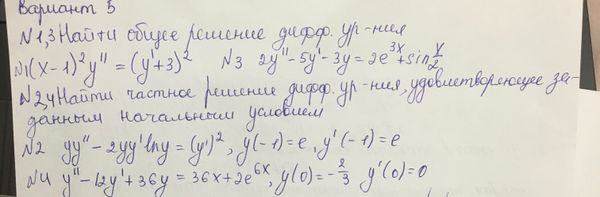 Вариант 5
№1,3 Найти общее решение дифф. ур-ния
№1 (x-1)²y'' = (y'+3)² №3 2y''-5y'-3y=2e^{3x}+sin x/2
№2,4 Найти частное решение дифф. ур-ния, удовлетворяющее за-
данным начальным условием
№2 yy''-2yy'lny=(y')², y(-1)=e, y'(-1)=e
№4 y''-12y'+36y=36x+2e^{6x}, y(0)=-2/3 y'(0)=0